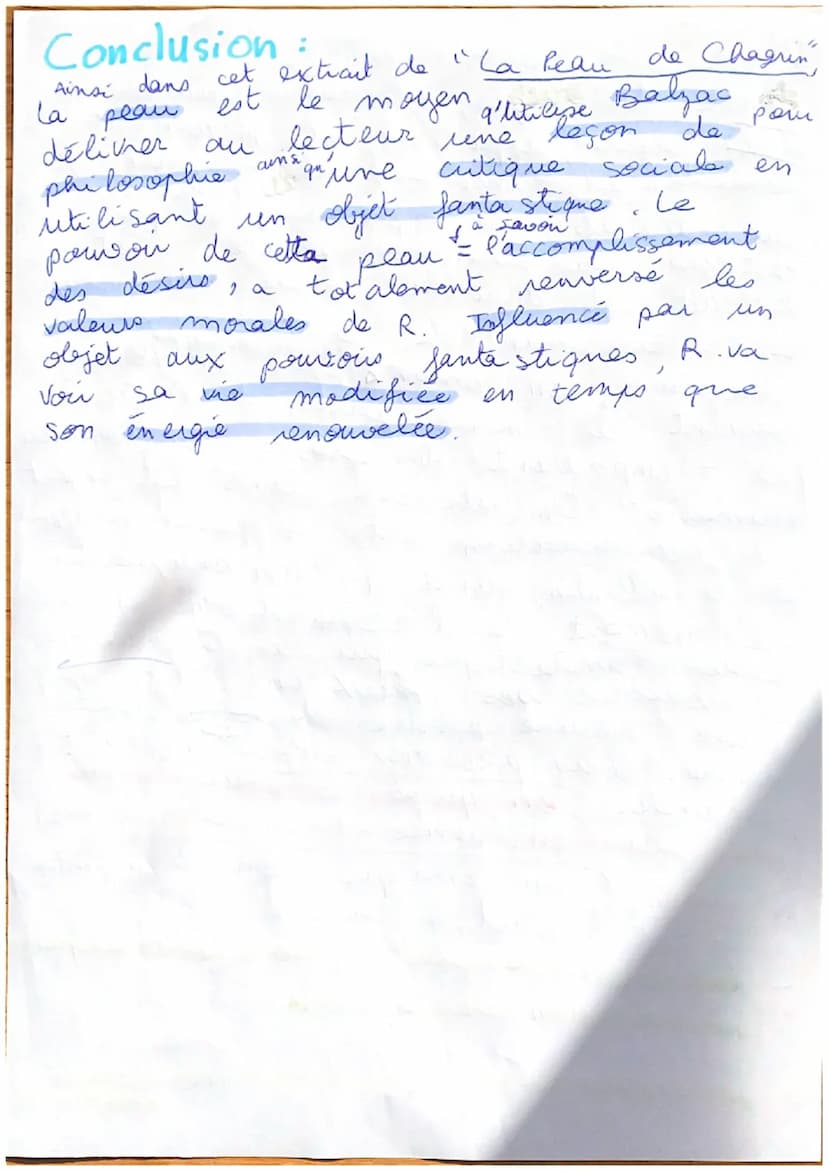 Conclusion :
Ainsi dans cet extrait de "La Peau de Chagrin",
La peau est le moyen q'utilise Balzac pour
délivrer au lecteur une leçon de
philosophie ainsi qu'une critique sociale en
utilisant un objet fantastique. Le
pouvoir de cette peau = à savoir l'accomplissement
des désirs, a totalement renversé les
valeurs morales de R. Influencé par un
objet aux pouvoirs fantastiques, R. va
voir sa vie modifiée en temps que
son énergie renouvelée.